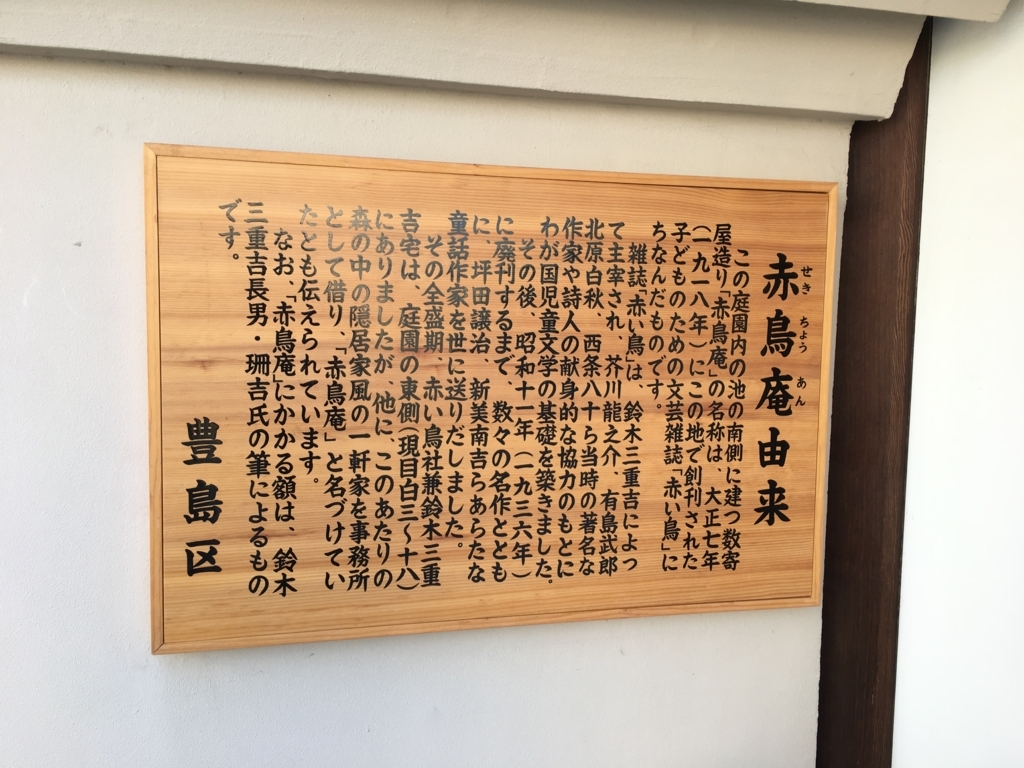 赤鳥庵由来
せき ちょう あん
この庭園内の池の南側に建つ数寄
屋造り「赤鳥庵」の名称は、大正七年
(一九一八年)にこの地で創刊された
子どものための文芸雑誌「赤い鳥」に
ちなんだものです。
雑誌「赤い鳥」は、鈴木三重吉によっ
て主宰され、芥川龍之介、有島武郎
北原白秋、西条八十ら当時の著名な
作家や詩人の献身的な協力のもとに
わが国児童文学の基礎を築きました。
その後、昭和十一年(一九三六年)
に廃刊するまで、数々の名作ととも
に、坪田譲治、新美南吉らあらたな
童話作家を世に送りだしました。
その全盛期、赤い鳥社兼鈴木三重
吉宅は、庭園の東側(現目白三~十八)
にありましたが、他に、このあたりの
森の中の隠居家風の一軒家を事務所
として借り、「赤鳥庵」と名づけてい
たとも伝えられています。
なお、「赤鳥庵」にかかる額は、鈴木
三重吉長男・珊吉氏の筆によるもの
です。
豊島区